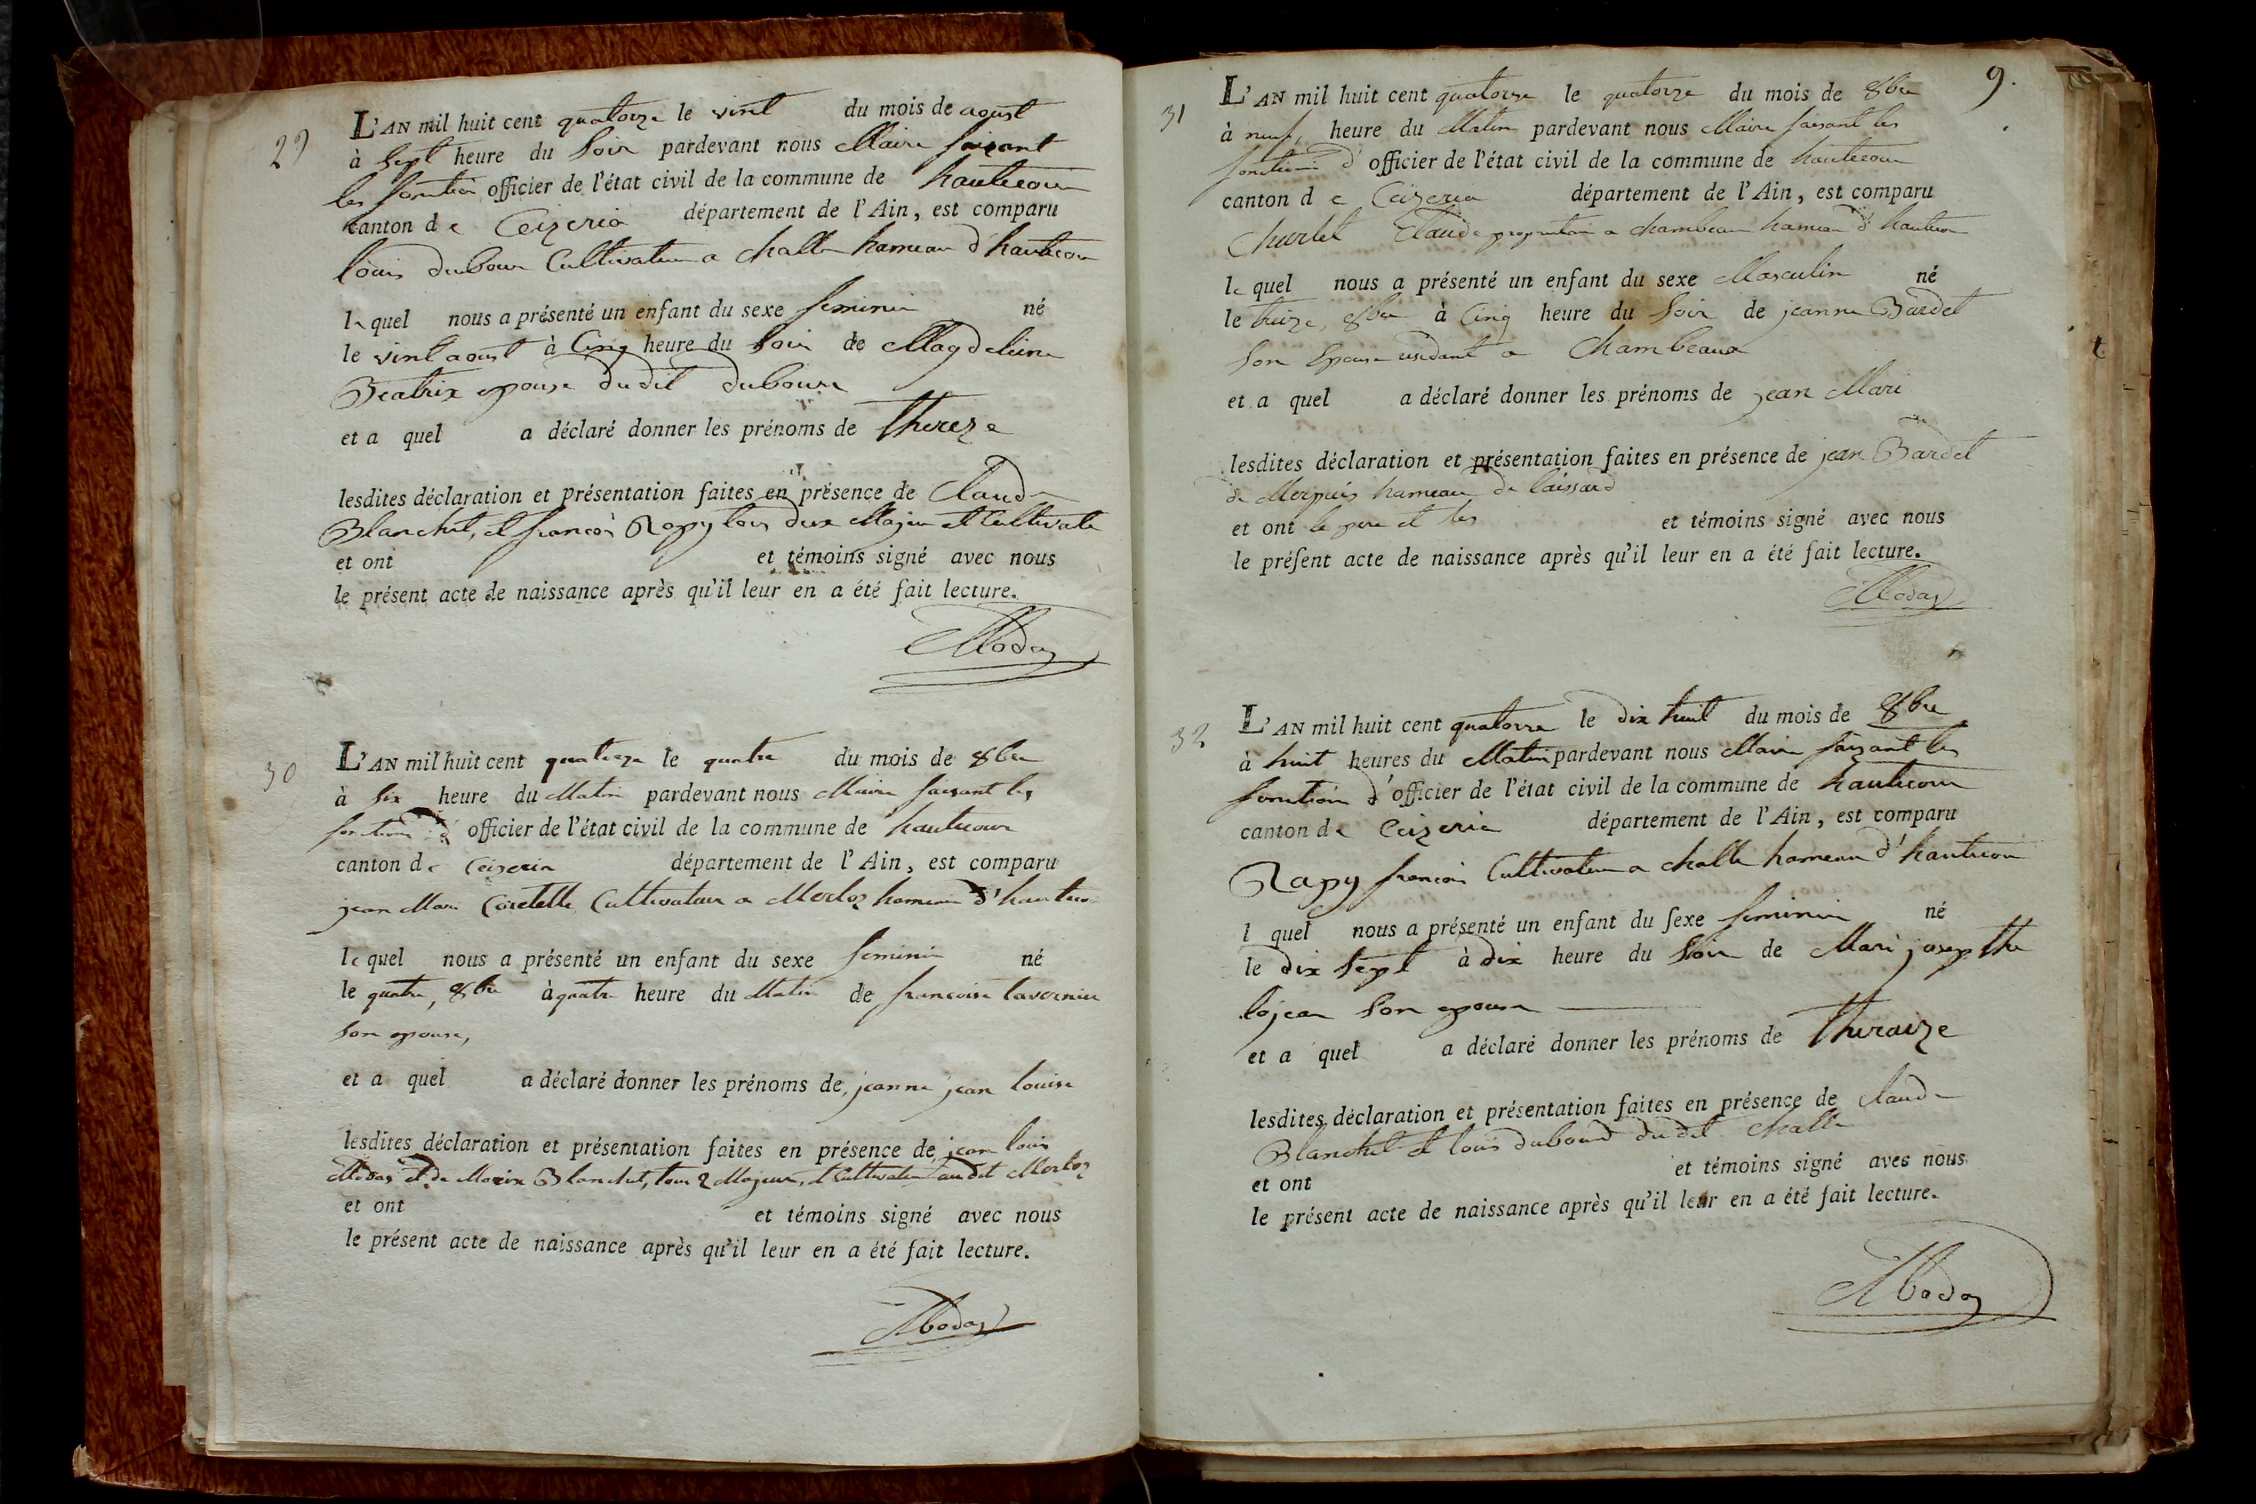 29
L'AN mil huit cent quatorze le vint du mois de aoust
à Sept heure du Soir pardevant nous Maire faisant
les fonction officier de l'état civil de la commune de hautecour
canton de Ceizeria département de l'Ain, est comparu
louis dubour Cultivateur a challe hameau d'hautecour
lequel nous a présenté un enfant du sexe feminin né
le vint aoust à Cinq heure du Soir de Magdeleine
Beatrix epouse dudit dubour
et a quel a déclaré donner les prénoms de thereze
lesdites déclaration et présentation faites en présence de Claude
Blanchet, et francois Rapy tous deux Majeur et Cultivate
et ont et témoins signé avec nous
le présent acte de naissance après qu'il leur en a été fait lecture.
Moday
30
L'AN mil huit cent quatorze le quatre du mois de 8bre
à Six heure du Matin pardevant nous Maire faisant les
fonctions d' officier de l'état civil de la commune de hautecour
canton de Ceizeria département de l'Ain, est comparu
jean Mari Cultivateur a Merloz hameau d'hautecour
lequel nous a présenté un enfant du sexe feminin né
le quatre, 8bre à quatre heure du Matin de francoise tavernier
Son epouse,
et a quel a déclaré donner les prénoms de, jeanne jean louise
lesdites déclaration et présentation faites en présence de, jean louis
Moday et de Marin Blanchet, tous 2 Majeur, et Cultivateur audit Merloz
et ont et témoins signé avec nous
le présent acte de naissance après qu'il leur en a été fait lecture.
Moday
9.
31
L'AN mil huit cent quatorze le quatorze du mois de 8bre
à neuf, heure du Matin pardevant nous Maire faisant les
fonctions d'officier de l'état civil de la commune de hautecour
canton de Ceizeria département de l'Ain, est comparu
Claude proprietaire a chambeau hameau d'hautecour
lequel nous a présenté un enfant du sexe Masculin né
le treize, 8bre à Cinq heure du Soir de jeanne Bardet
Son Epouse residante a Chambeaux
et a quel a déclaré donner les prénoms de jean Mari
lesdites déclaration et présentation faites en présence de jean Bardet
de hameau de
et ont le pere et les et témoins signé avec nous
le présent acte de naissance après qu'il leur en a été fait lecture.
Moday
32
L'AN mil huit cent quatorze le dix huit du mois de 8bre
à huit heures du Matin pardevant nous Maire faisant les
fonction d'officier de l'état civil de la commune de hautecour
canton de Ceizeria département de l'Ain, est comparu
Rapy francois Cultivateur a challe hameau d'hautecour
l quel nous a présenté un enfant du sexe feminin né
le dix Sept à dix heure du Soir de Mari josepthe
lojean Son epouse
et a quel a déclaré donner les prénoms de theraize
lesdites déclaration et présentation faites en présence de Claude
Blanchet et louis dubourd dudit challe
et ont et témoins signé avec nous
le présent acte de naissance après qu'il leur en a été fait lecture.
Moday